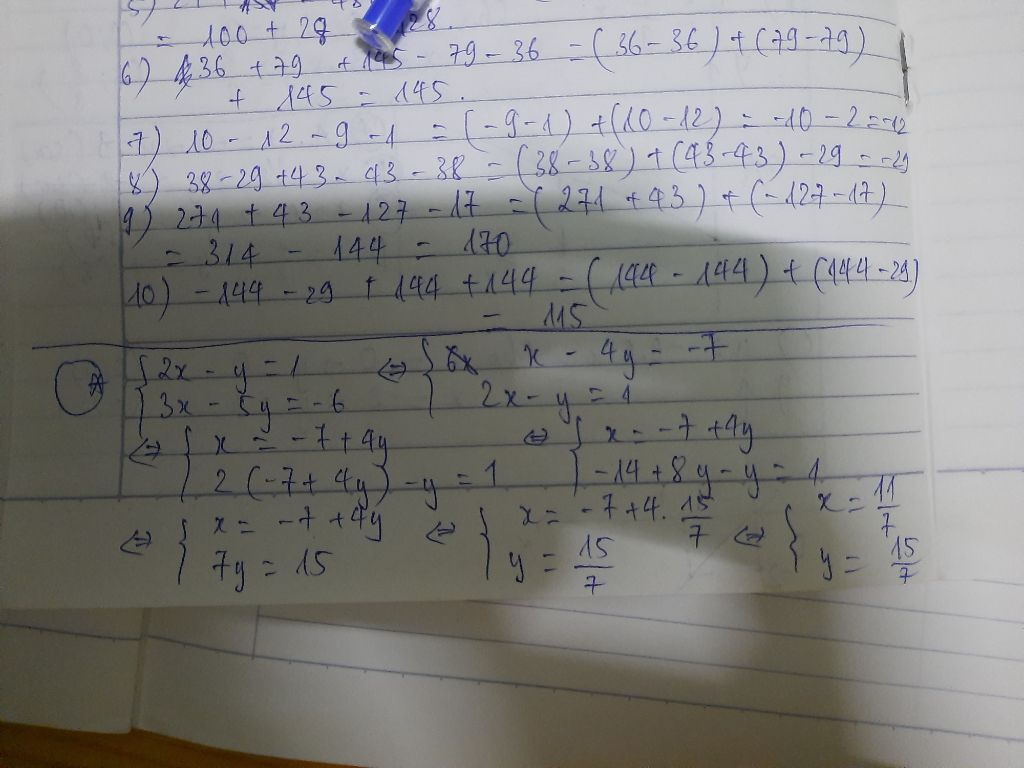 5)
= 100 + 28 128.
6) 36 + 79 + 145 - 79 - 36 = (36 - 36) + (79 - 79)
+ 145 = 145.
7) 10 - 12 - 9 - 1 = (-9 - 1) + (10 - 12) = -10 - 2 = -12
8) 38 - 29 + 43 - 43 - 38 = (38 - 38) + (43 - 43) - 29 = -29
9) 271 + 43 - 127 - 17 = (271 + 43) + (-127 - 17)
= 314 - 144 = 170
10) - 144 - 29 + 144 + 144 = (144 - 144) + (144 - 29)
= 115
{ 2x - y = 1 ⇔ { x - 4y = -7
3x - 5y = -6 2x - y = 1
⇔ { x = -7 + 4y ⇔ { x = -7 + 4y
2(-7 + 4y) - y = 1 -14 + 8y - y = 1
⇔ { x = -7 + 4y ⇔ { x = -7 + 4. 15/7 ⇔ { x = 11/7
7y = 15 y = 15/7 y = 15/7